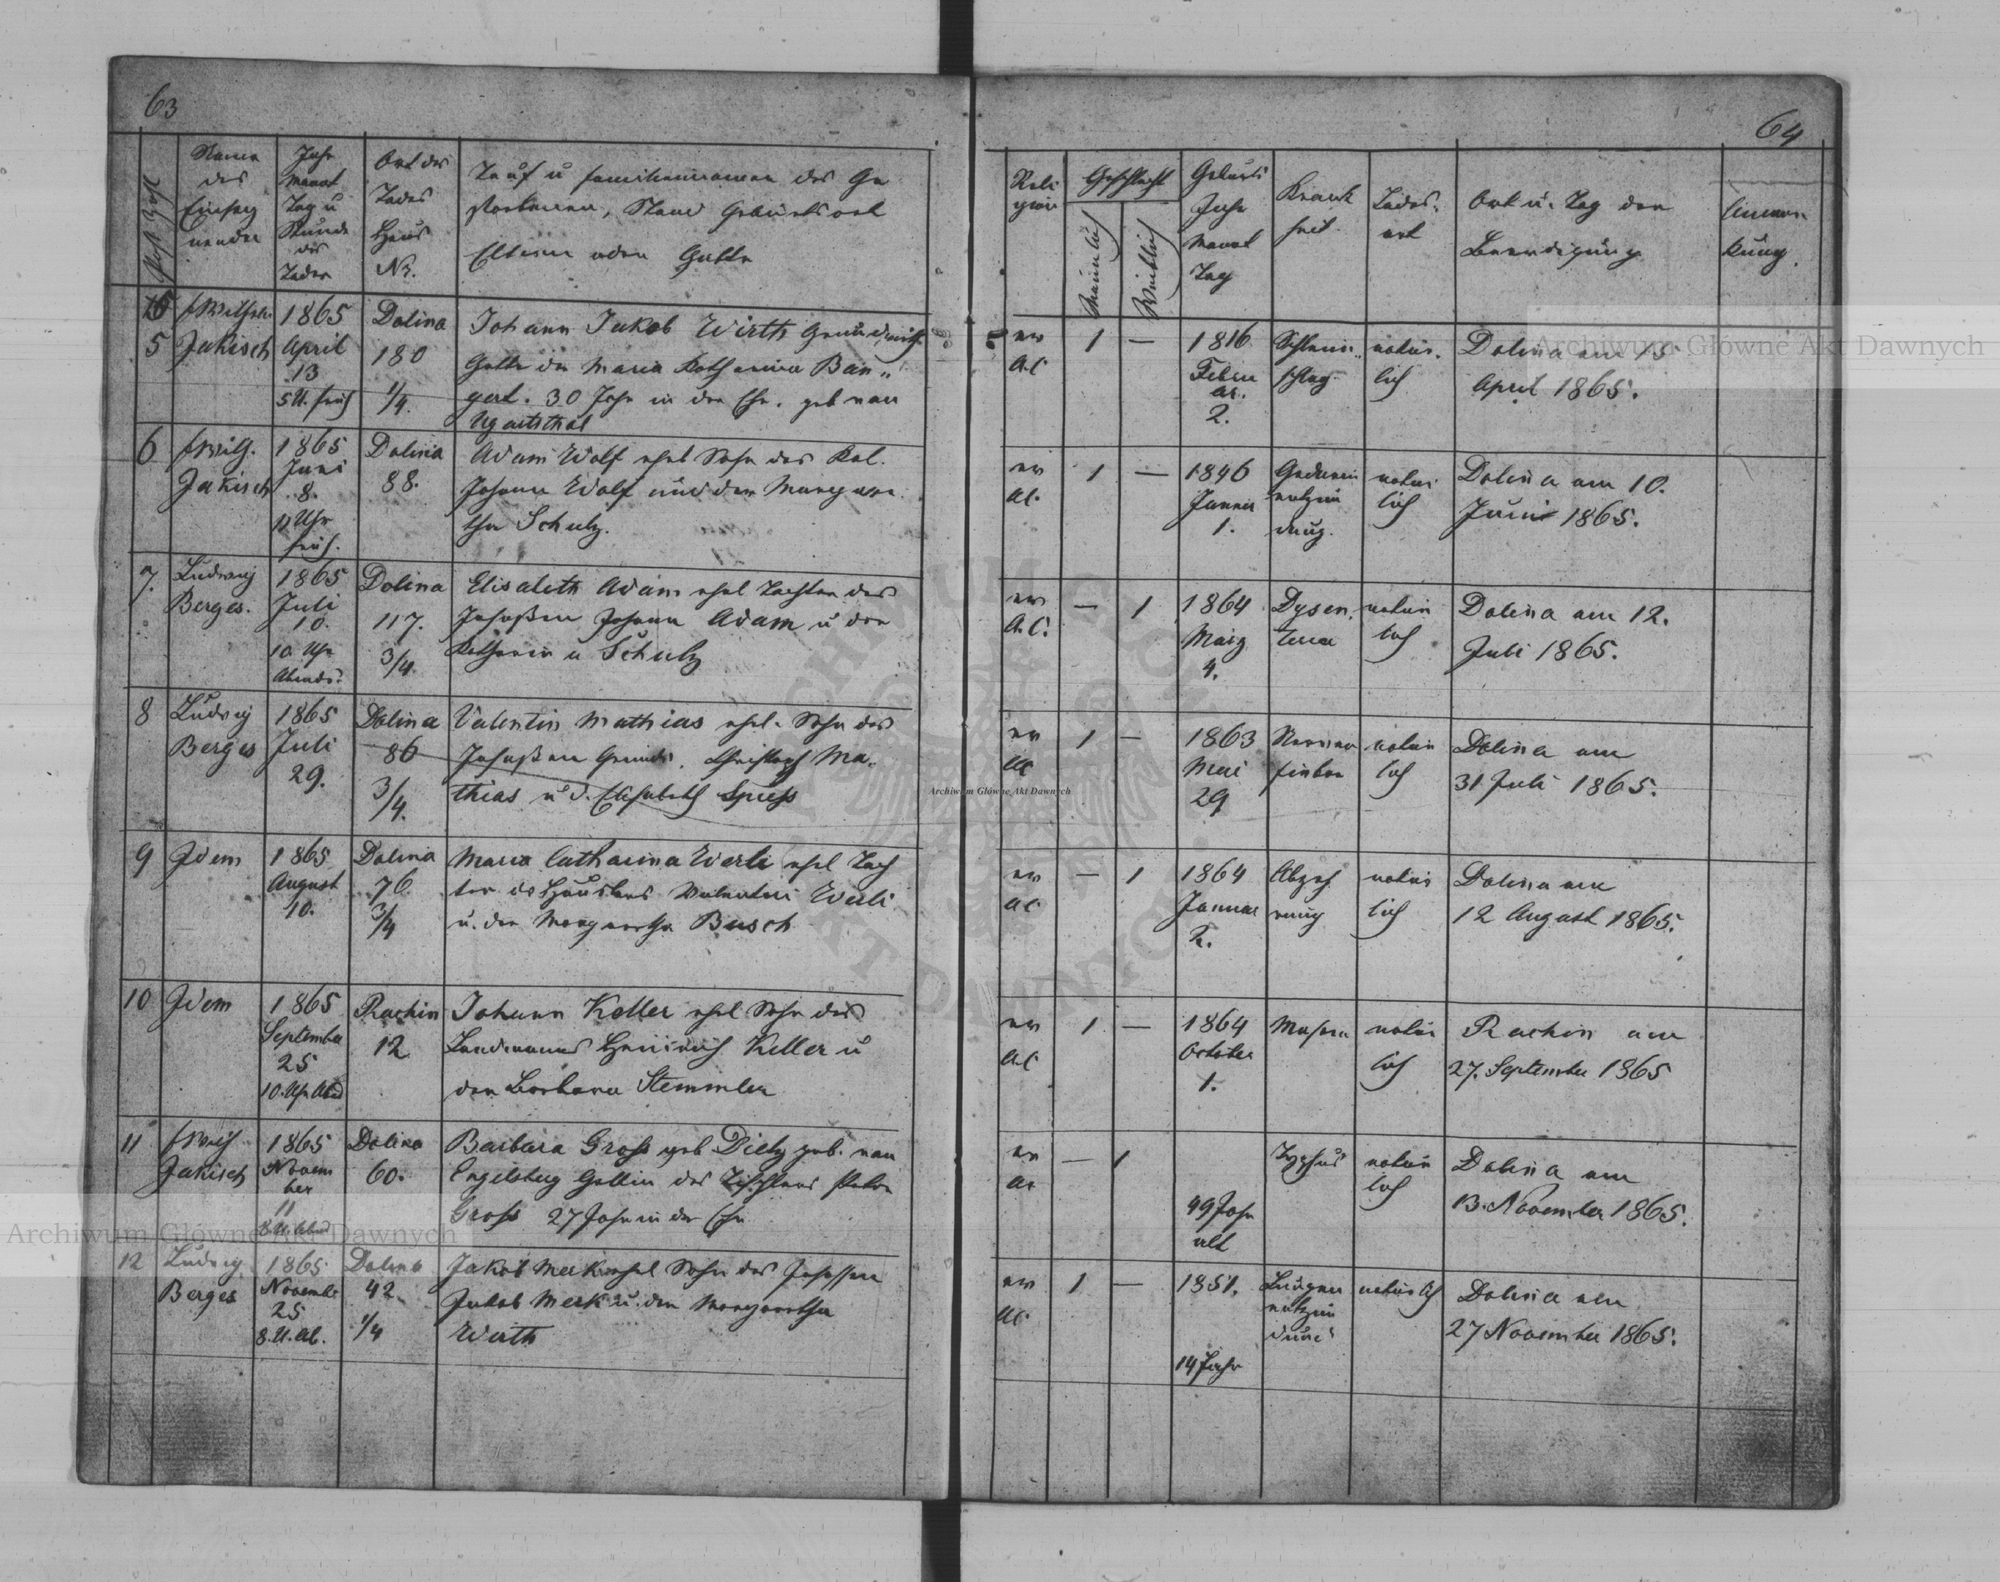 63
Name
des
Einseg
nenden
Jahr
Monat
Tag u
Stunde
des
Todes
Ort des
Todes
Haus
Nr.
Tauf u Familiennamen des Ge
storbenen, Stand Geburtsort
Eltern oder Gatte
5
Jakisch
1865
April
13
5 U. früh
Dolina
180
1/4.
Johann Jakob Wirth Grundwirth
Gatte der Maria Katharina Ban„
gert. 30 Jahr in der Ehe. geb von
Ugartsthal
6
Wilh.
Jakisch
1865
Juni
8.
11 Uhr
früh.
Dolina
88.
Adam Wolf ehel Sohn des Kol.
Johann Wolf und der Margare
tha Schulz.
7.
Ludwig
Berges.
1865
Juli
10.
10 Uhr
Abends.
Dolina
117.
3/4.
Elisabeth Adam ehel Tochter des
Insaßen Johann Adam u der
Katharina Schulz
8
Ludwig
Berges
1865
Juli
29.
Dolina
86
3/4.
Valentin Mathias ehel. Sohn des
Insaßen Christoph Ma„
thias u d. Elisabeth Spiess
9
Idem
1865
August
10.
Dolina
76.
3/4
Maria Catharina Werli ehel Toch
ter des Häuslers Valentin Werli
u. der Margaretha Busch
10
Idem
1865
September
25
10. Uhr Abd
Rachin
12
Johann Keller ehel Sohn des
Landmanns Heinrich Keller u
der Barbara Stemmler
11
Jakisch
1865
Novem
ber
11
8. U. Abd
Dolina
60.
Barbara Gross geb Dietz geb. von
Engelsberg Gattin des Tischlers Peter
Gross 27 Jahr in der Ehe
12
Ludwig
Berges
1865
November
25
8. U. Ab.
Dolina
42.
1/4
Jakob Merk ehel Sohn des Insassen
Jakob Merk u. der Margaretha
Wirth
64
Reli
gion
Geschlecht
Männlich
Weiblich
Geburts
Jahr
Monat
Tag
Krank
heit
Todes„
art
Ort u. Tag der
Beerdigung
Anmer
kung.
ev
A.C
1
—
1816
Febru
ar.
2.
Schleim„
schlag.
natür.
lich
Dolina am 15
April 1865.
ev
AC.
1
—
1846
Januar
1.
Gedärm
entzün
dung.
natür
lich
Dolina am 10.
Juni 1865.
ev
A.C.
—
1
1864
März
4.
Dysen
teria
natür
lich
Dolina am 12.
Juli 1865.
ev
AC
1
—
1863
Mai
29
Nerven
fieber
natür
lich
Dolina am
31 Juli 1865.
ev
AC
—
1
1864
Januar
2.
Abzeh
rung
natür
lich
Dolina am
12 August 1865.
ev
A.C
1
—
1864
October
1.
Masern
natür
lich
Rachin am
27. September 1865
ev
AC
—
1
49 Jahr
alt
Typhus
natür
lich
Dolina am
13. November 1865.
ev
AC.
1
—
1851.
14 Jahr
Lungen
entzün
dung
natürlich
Dolina am
27 November 1865.
Archiwum Główne Akt Dawnych
Archiwum Główne Akt Dawnych
Archiwum Główne Akt Dawnych